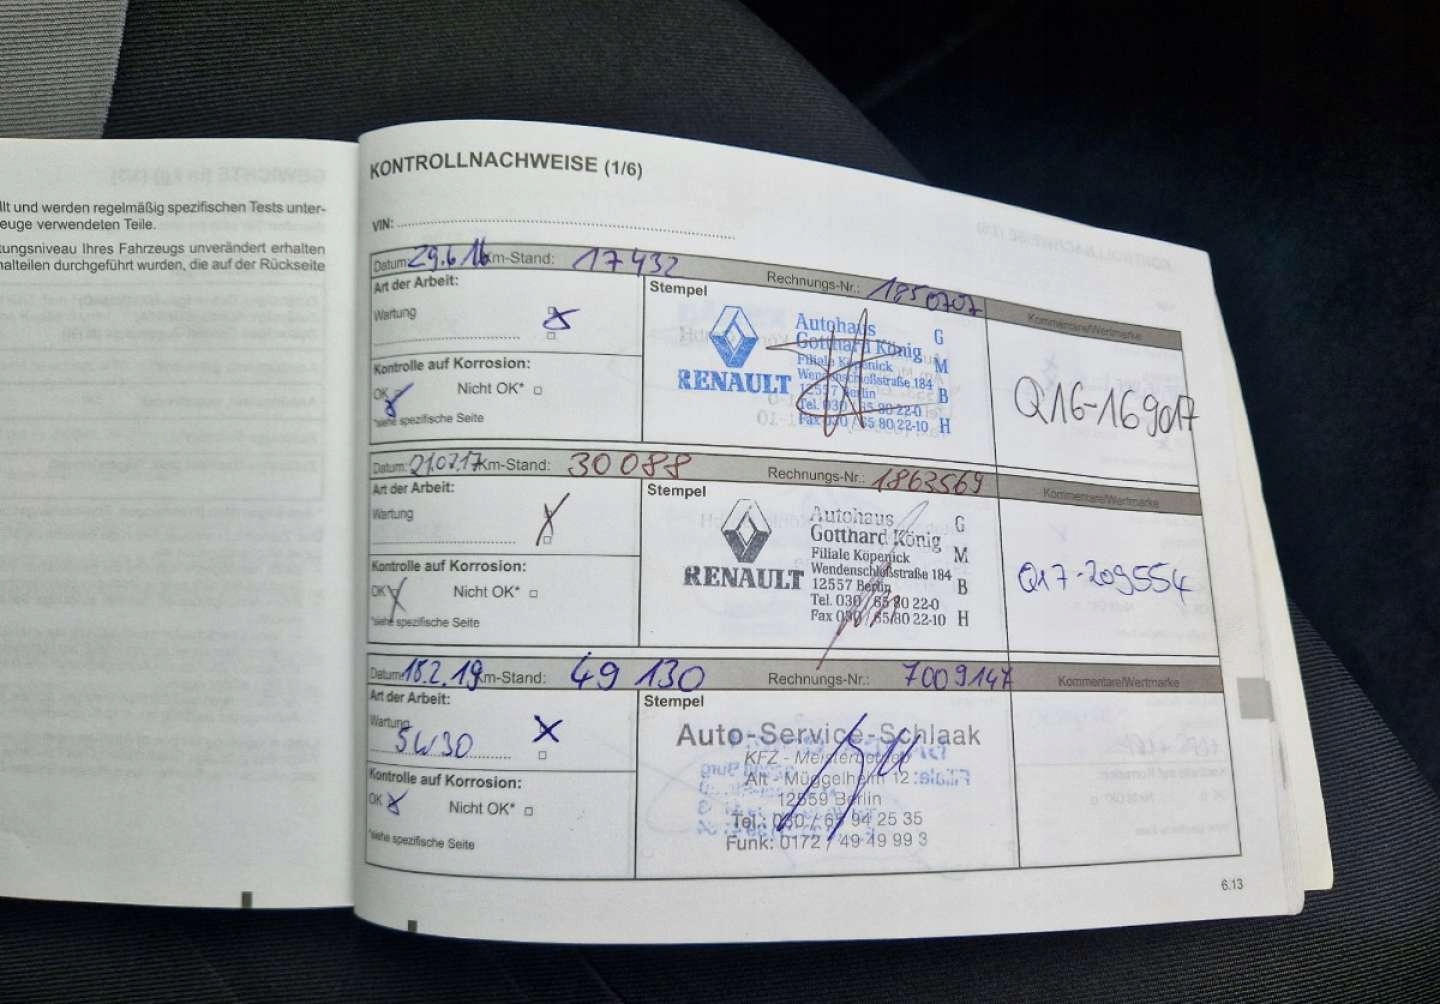 llt und werden regelmäßig spezifischen Tests unter-
euge verwendeten Teile.
tungsniveau Ihres Fahrzeugs unverändert erhalten
nalteilen durchgeführt wurden, die auf der Rückseite
KONTROLLNACHWEISE (1/6)
VIN:
Datum: 29.6.16 Km-Stand: 17432 Rechnungs-Nr.: 1850707 Kommentare/Wertmarke
Art der Arbeit:
Wartung
Kontrolle auf Korrosion:
OK Nicht OK*
*siehe spezifische Seite
Stempel
RENAULT
Autohaus G
Gotthard König M
Filiale Köpenick
Wendenschloßstraße 184 B
12557 Berlin
Tel. 030 / 65 80 22-0
Fax 030 / 65 80 22-10 H
Q16-169017
Datum: 21.07.17 Km-Stand: 30088 Rechnungs-Nr.: 1863569 Kommentare/Wertmarke
Art der Arbeit:
Wartung
Kontrolle auf Korrosion:
OK Nicht OK*
*siehe spezifische Seite
Stempel
RENAULT
Autohaus G
Gotthard König M
Filiale Köpenick
Wendenschloßstraße 184 B
12557 Berlin
Tel. 030 / 65 80 22-0
Fax 030 / 65 80 22-10 H
Q17-209554
Datum: 15.2.19 Km-Stand: 49 130 Rechnungs-Nr.: 7009147 Kommentare/Wertmarke
Art der Arbeit:
Wartung
5W30
Kontrolle auf Korrosion:
OK Nicht OK*
*siehe spezifische Seite
Stempel
Auto-Service-Schlaak
KFZ - Meisterbetrieb
Alt - Müggelheim 12
12559 Berlin
Tel.: 030 / 65 94 25 35
Funk: 0172 / 49 49 99 3
6.13